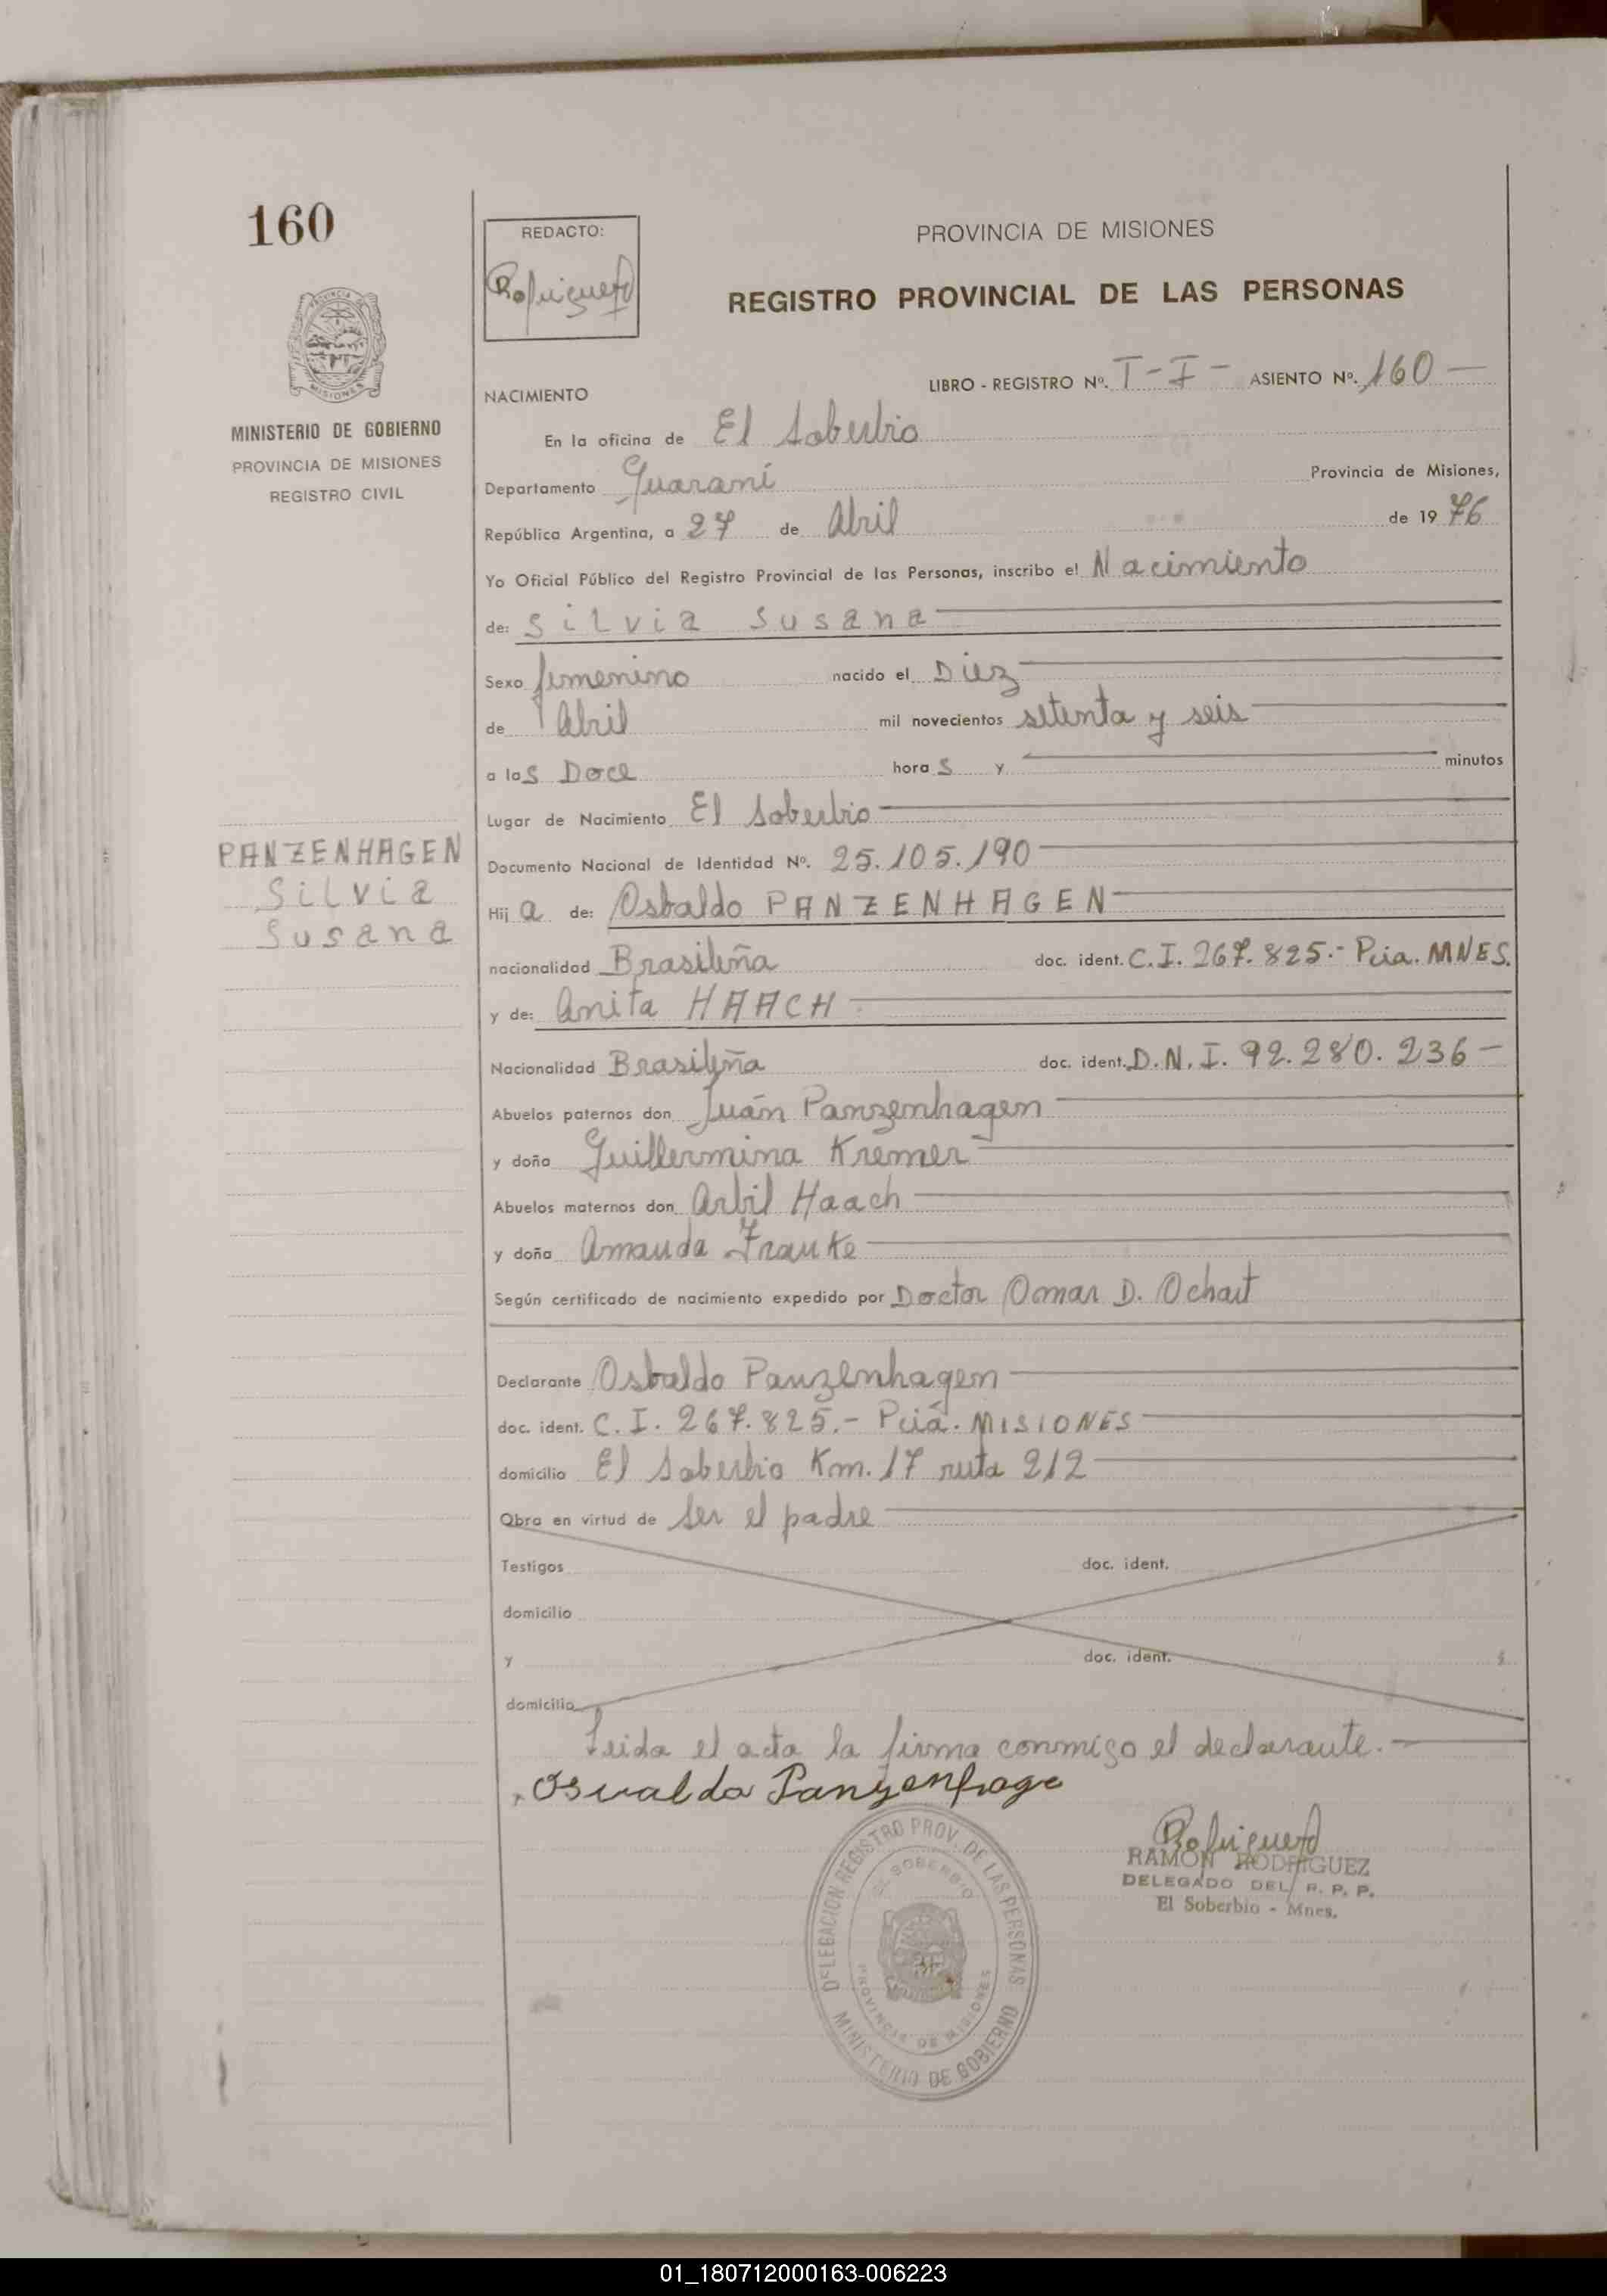 160
REDACTO:
PROVINCIA DE MISIONES
REGISTRO PROVINCIAL DE LAS PERSONAS
PROVINCIA DE
MISIONES
MINISTERIO DE GOBIERNO
PROVINCIA DE MISIONES
REGISTRO CIVIL
LIBRO - REGISTRO Nº. T-I- ASIENTO Nº. 160 —
NACIMIENTO
En la oficina de El Soberbio
Departamento Guaraní Provincia de Misiones,
República Argentina, a 27 de Abril de 1976
Yo Oficial Público del Registro Provincial de las Personas, inscribo el Nacimiento
de: Silvia Susana
Sexo femenino nacido el Diez
de Abril mil novecientos setenta y seis
a las Doce horas y minutos
Lugar de Nacimiento El Soberbio
PANZENHAGEN
Silvia
Susana
Documento Nacional de Identidad Nº. 25.105.190
Hija de: Osbaldo PANZENHAGEN
nacionalidad Brasileña doc. ident. C.I. 267.825.- Pcia. MNES.
y de: Anita HAACH
Nacionalidad Brasileña doc. ident. D.N.I. 92.280.236 —
Abuelos paternos don Juán Panzenhagen
y doña Guillermina Kremer
Abuelos maternos don Arbil Haach
y doña Amanda Franke
Según certificado de nacimiento expedido por Doctor Omar D. Ochart
Declarante Osbaldo Panzenhagen
doc. ident. C.I. 267.825.- Pciá. MISIONES
domicilio El Soberbio Km. 17 ruta 212
Obra en virtud de ser el padre
Testigos doc. ident.
domicilio
y doc. ident.
domicilio
Leida el acta la firma conmigo el declarante.
Osvaldo Panzenhage
DELEGACION REGISTRO PROV. DE LAS PERSONAS
EL SOBERBIO
PROVINCIA DE MISIONES
MINISTERIO DE GOBIERNO
RAMON RODRIGUEZ
DELEGADO DEL R. P. P.
El Soberbio - Mnes.
01_180712000163-006223